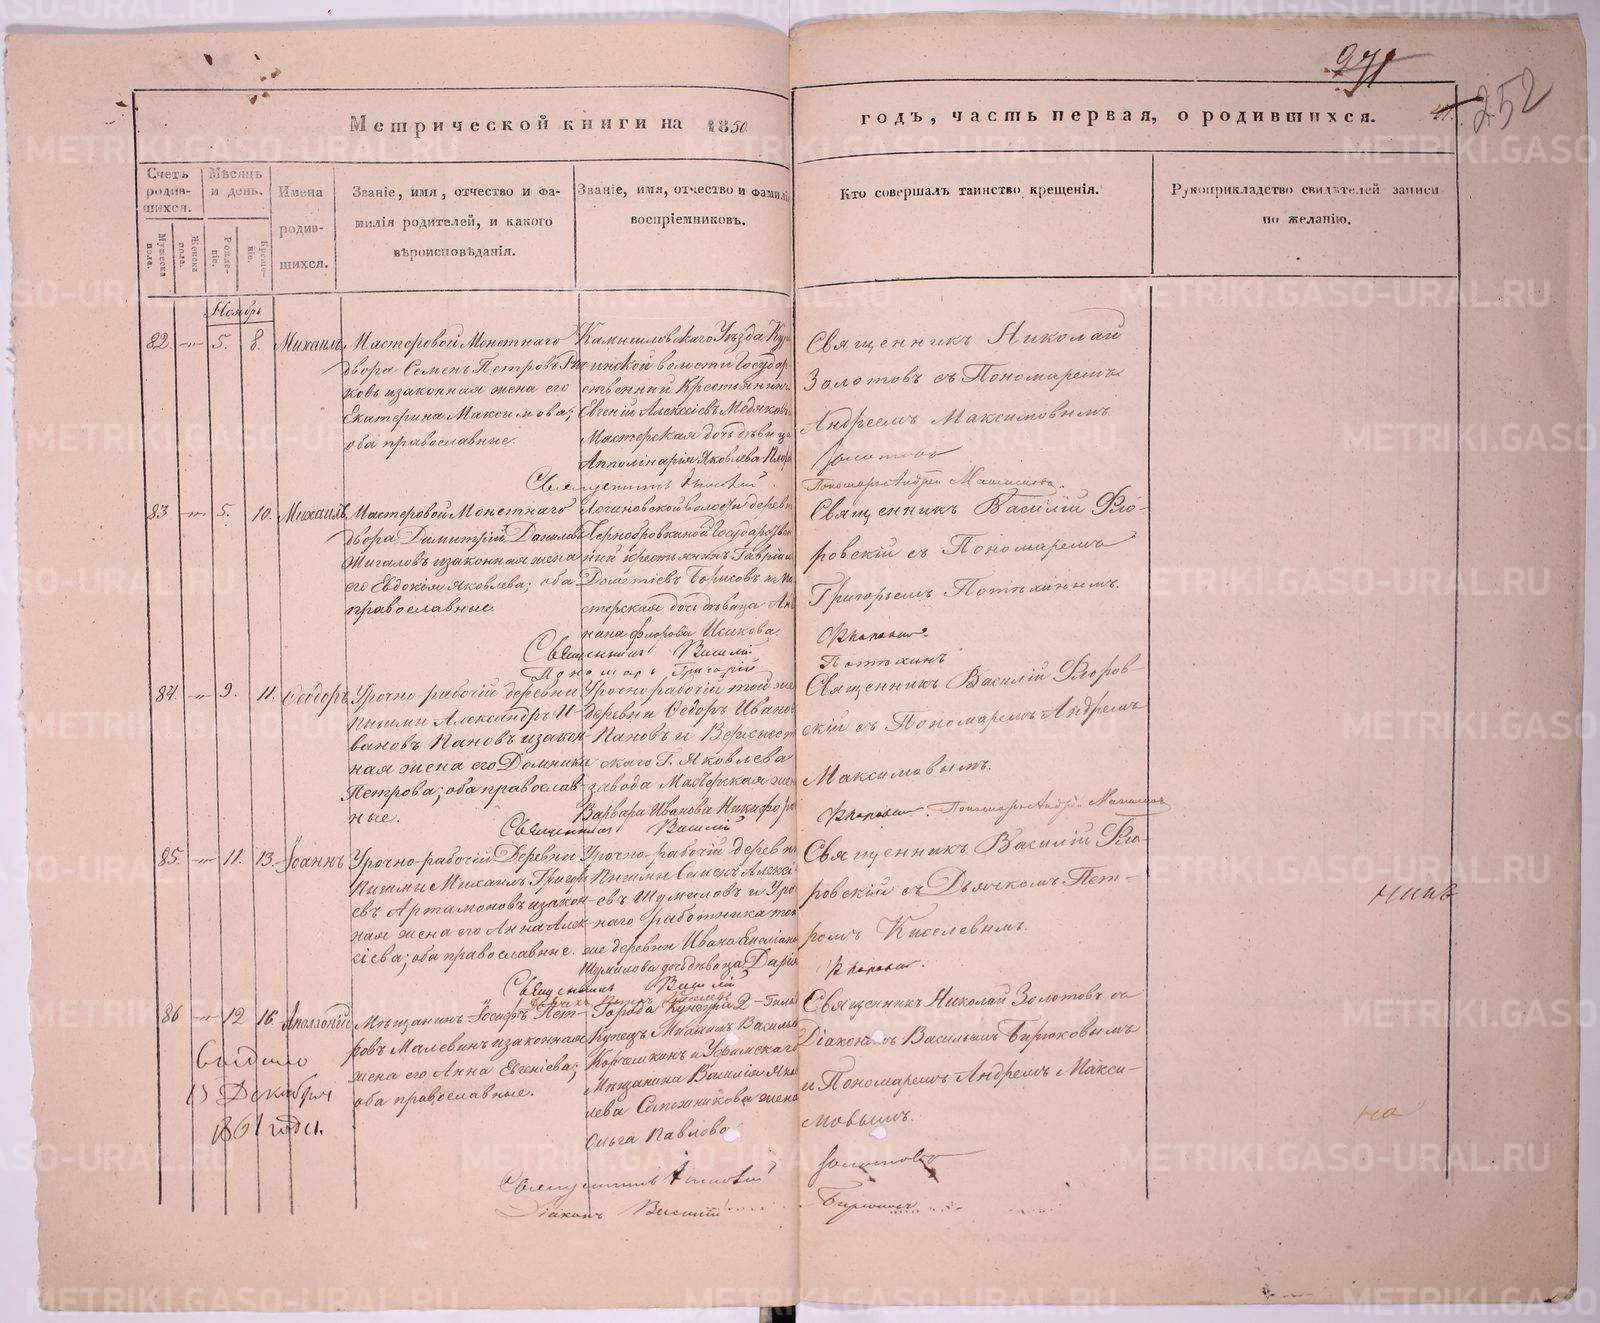 271
252
Метрической книги на 1850 годъ, часть первая, о родившихся.
Счетъ родившихся.
Мужеска пола.
Женска пола.
Мѣсяцъ и день.
Рожденіе.
Крещеніе.
Имена родившихся.
Званіе, имя, отчество и фамилія родителей, и какого вѣроисповѣданія.
Званіе, имя, отчество и фамилія воспріемниковъ.
Кто совершалъ таинство крещенія.
Рукоприкладство свидѣтелей записи по желанію.
Ноябрь
82. 5. 8. Михаилъ
Мастеровой Монетнаго
двора Семенъ Петровъ
ковъ и законная жена его
Екатерина Максимова;
оба православные.
Камышловскаго Уѣзда
волости Государ
ственный Крестьянинъ
Евгеній Алексіевъ Медяковъ
Мастерская дочь дѣвица
Апполинарія Яковлева
Священникъ Николай
Золотовъ съ Пономаремъ
Андреемъ Максимовымъ
Священникъ Николай Золотовъ
Пономарь Андрей Максимовъ.
83 5. 10. Михаилъ
Мастеровой Монетнаго
двора Димитрій Даниловъ
Жигаловъ и законная жена
его Евдокія Яковлева; оба
православные.
Логиновской волости деревни
Чернобровкиной Государствен
ный крестьянинъ Гавріилъ
Дометіевъ Борисовъ и Ма
стерская дочь дѣвица
нина Флорова Исакова.
Священникъ Василій Фло-
ровскій съ Пономаремъ
Григорьемъ Потѣхинымъ.
Священникъ Василій Флоровскій
Пономарь Григорій Потѣхинъ
84. 9. 11. Ѳеодоръ
Урочно рабочій деревни
Пышмы Александръ И-
вановъ Пановъ и закон-
ная жена его Домника
Петрова; оба православ-
ные.
Урочно рабочій той же
деревни Ѳедоръ Иванов
Пановъ и Верхисет
скаго Г. Яковлева
завода Мастерская жена
Варвара Иванова Никифоро
Священникъ Василій Флоров-
скій съ Пономаремъ Андреемъ
Максимовымъ.
Священникъ Василій Флоровскій. Пономарь Андрей Максимовъ
85. 11. 13. Іоаннъ
Урочно-рабочій Деревни
Пышмы Михаилъ Григорі
евъ Артамоновъ и закон
ная жена его Анна Алек
сіева; оба православные.
Урочно-рабочій деревни
Пышмы Сименъ Алексі
евъ Шумиловъ и Уроч
наго работника той
же деревни Ивана
Шумилова дочь дѣвица Дарія
Священникъ Василій Фло-
ровскій съ Дьячкомъ Пет-
ромъ Киселевымъ.
Священникъ Василій Флоровскій.
Дьячекъ Петръ Киселевъ
86 12 16. Аполлоній
Мѣщанинъ Іосифъ Пет-
ровъ Малевинъ и законная
жена его Анна Евгеніева;
оба православные.
Города Кунгура 2-Гильд
Купецъ Михаилъ Василье
и Уфимскаго
Мѣщанина Василія Яков
лева Сапожникова жена
Ольга Павлова
Священникъ Николай Золотовъ съ
Діакономъ Васильемъ Бирюковымъ
и Пономаремъ Андреемъ Макси-
мовымъ.
Священникъ Николай Золотовъ
Діаконъ Василій Бирюковъ
13 Декабря
1861 года.
METRIKI.GASO-URAL.RU